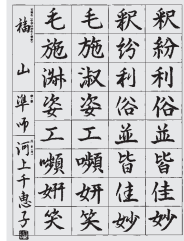 釈紛利俗並皆佳妙
毛施淑姿工嚬妍笑
毛施淑姿工嚬妍笑
福山 準師 河上千恵子